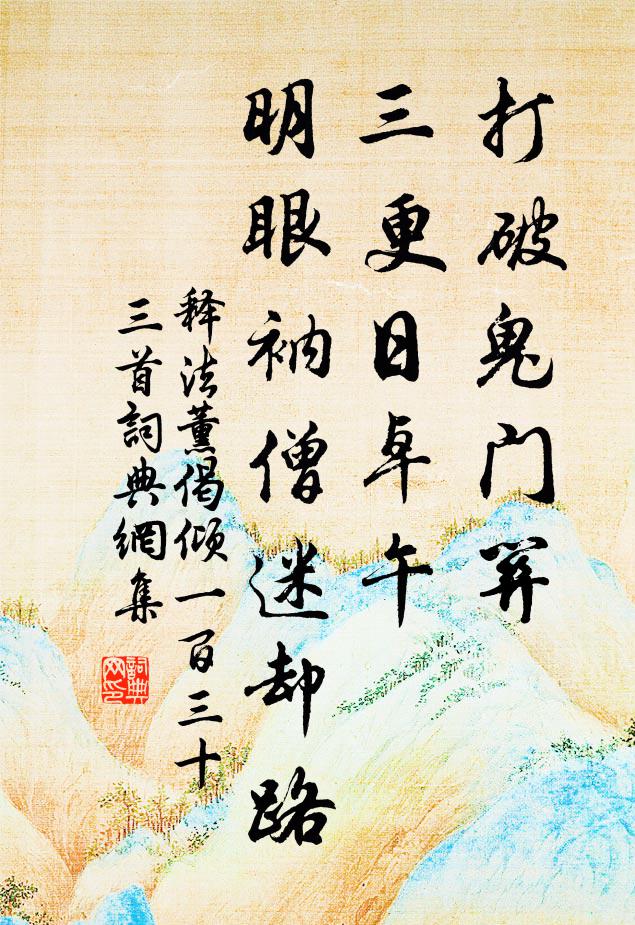 打破鬼门关
三更日卓午
明眼衲僧迷却路
释法薰偈倾一百三十
三首詞典網集
詞典
网印